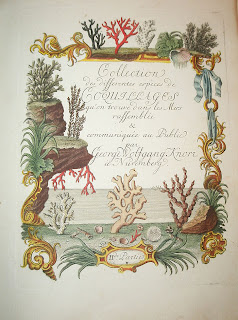 Collection
des differentes especes de
COQUILLAGES
qu'on trouve dans les Mers
rassemblée
&
communiquée au Public
par
George Wolfgang Knorr
à Nuremberg.
IIᵉ Partie